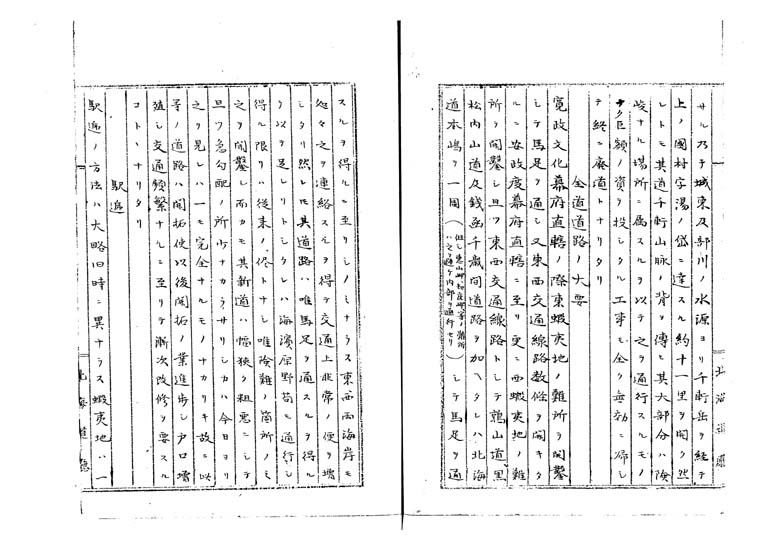 サル乃チ城東及部川ノ水源ヨリ千軒岳ヲ経テ
上ノ國村字湯ノ岱ニ達スル約十一里ヲ開ク然
レトモ其道千軒山脉ノ背ヲ傳ヒ其大部分ハ險
峻ナル場所ニ属スルヲ以テ之ヲ通行スルモノ
ナク巨額ノ資ヲ投シタル工事モ全ク無効ニ帰シ
テ終ニ廃道トナリタリ
全道道路ノ大要
寛政文化幕府直轄ノ際東蝦夷地ノ難所ヲ開鑿
シテ馬足ヲ通シ又東西交通線路数條ヲ開キタ
ルニ安政度幕府直轄ニ至リ更ニ西蝦夷地ノ難
所ヲ開鑿シ且ツ東西交通線路トシテ鶉山道黒
松内山道及銭函千歳間道路ヲ加ヘタレハ北海
道本嶋ヲ一周
ハ之ヲ避ケ内部ヲ通行セリ
シテ馬足ヲ通
スルヲ得ルニ至リシノミナラス東西両海岸モ
処々之ヲ連絡スルヲ得テ交通上非常ノ便ヲ増
シタリ然レトモ其道路ハ唯馬足ヲ通スルヲ得ル
ヲ以テ足レリトシタレハ海濱原野苟モ通行シ
得ル限リハ従来ノ侭トナシ唯險難ノ箇所ノミ
之ヲ開鑿シ而カモ其新道ハ幅狭ク粗悪ニシテ
且ツ急勾配ノ所少ナカラサリシカハ今日ヨリ
之ヲ見レハ一モ完全ナルモノナカリキ故ニ以
等ノ道路ハ開拓使以後開拓ノ業進歩シ戸口増
殖シ交通頻繁ナルニ至リテ漸次改修ヲ要スル
コトヽナリタリ
駅逓
駅逓ノ方法ハ大略旧時ニ異ナラス蝦夷地ハ一
北海道廳
北海道廳